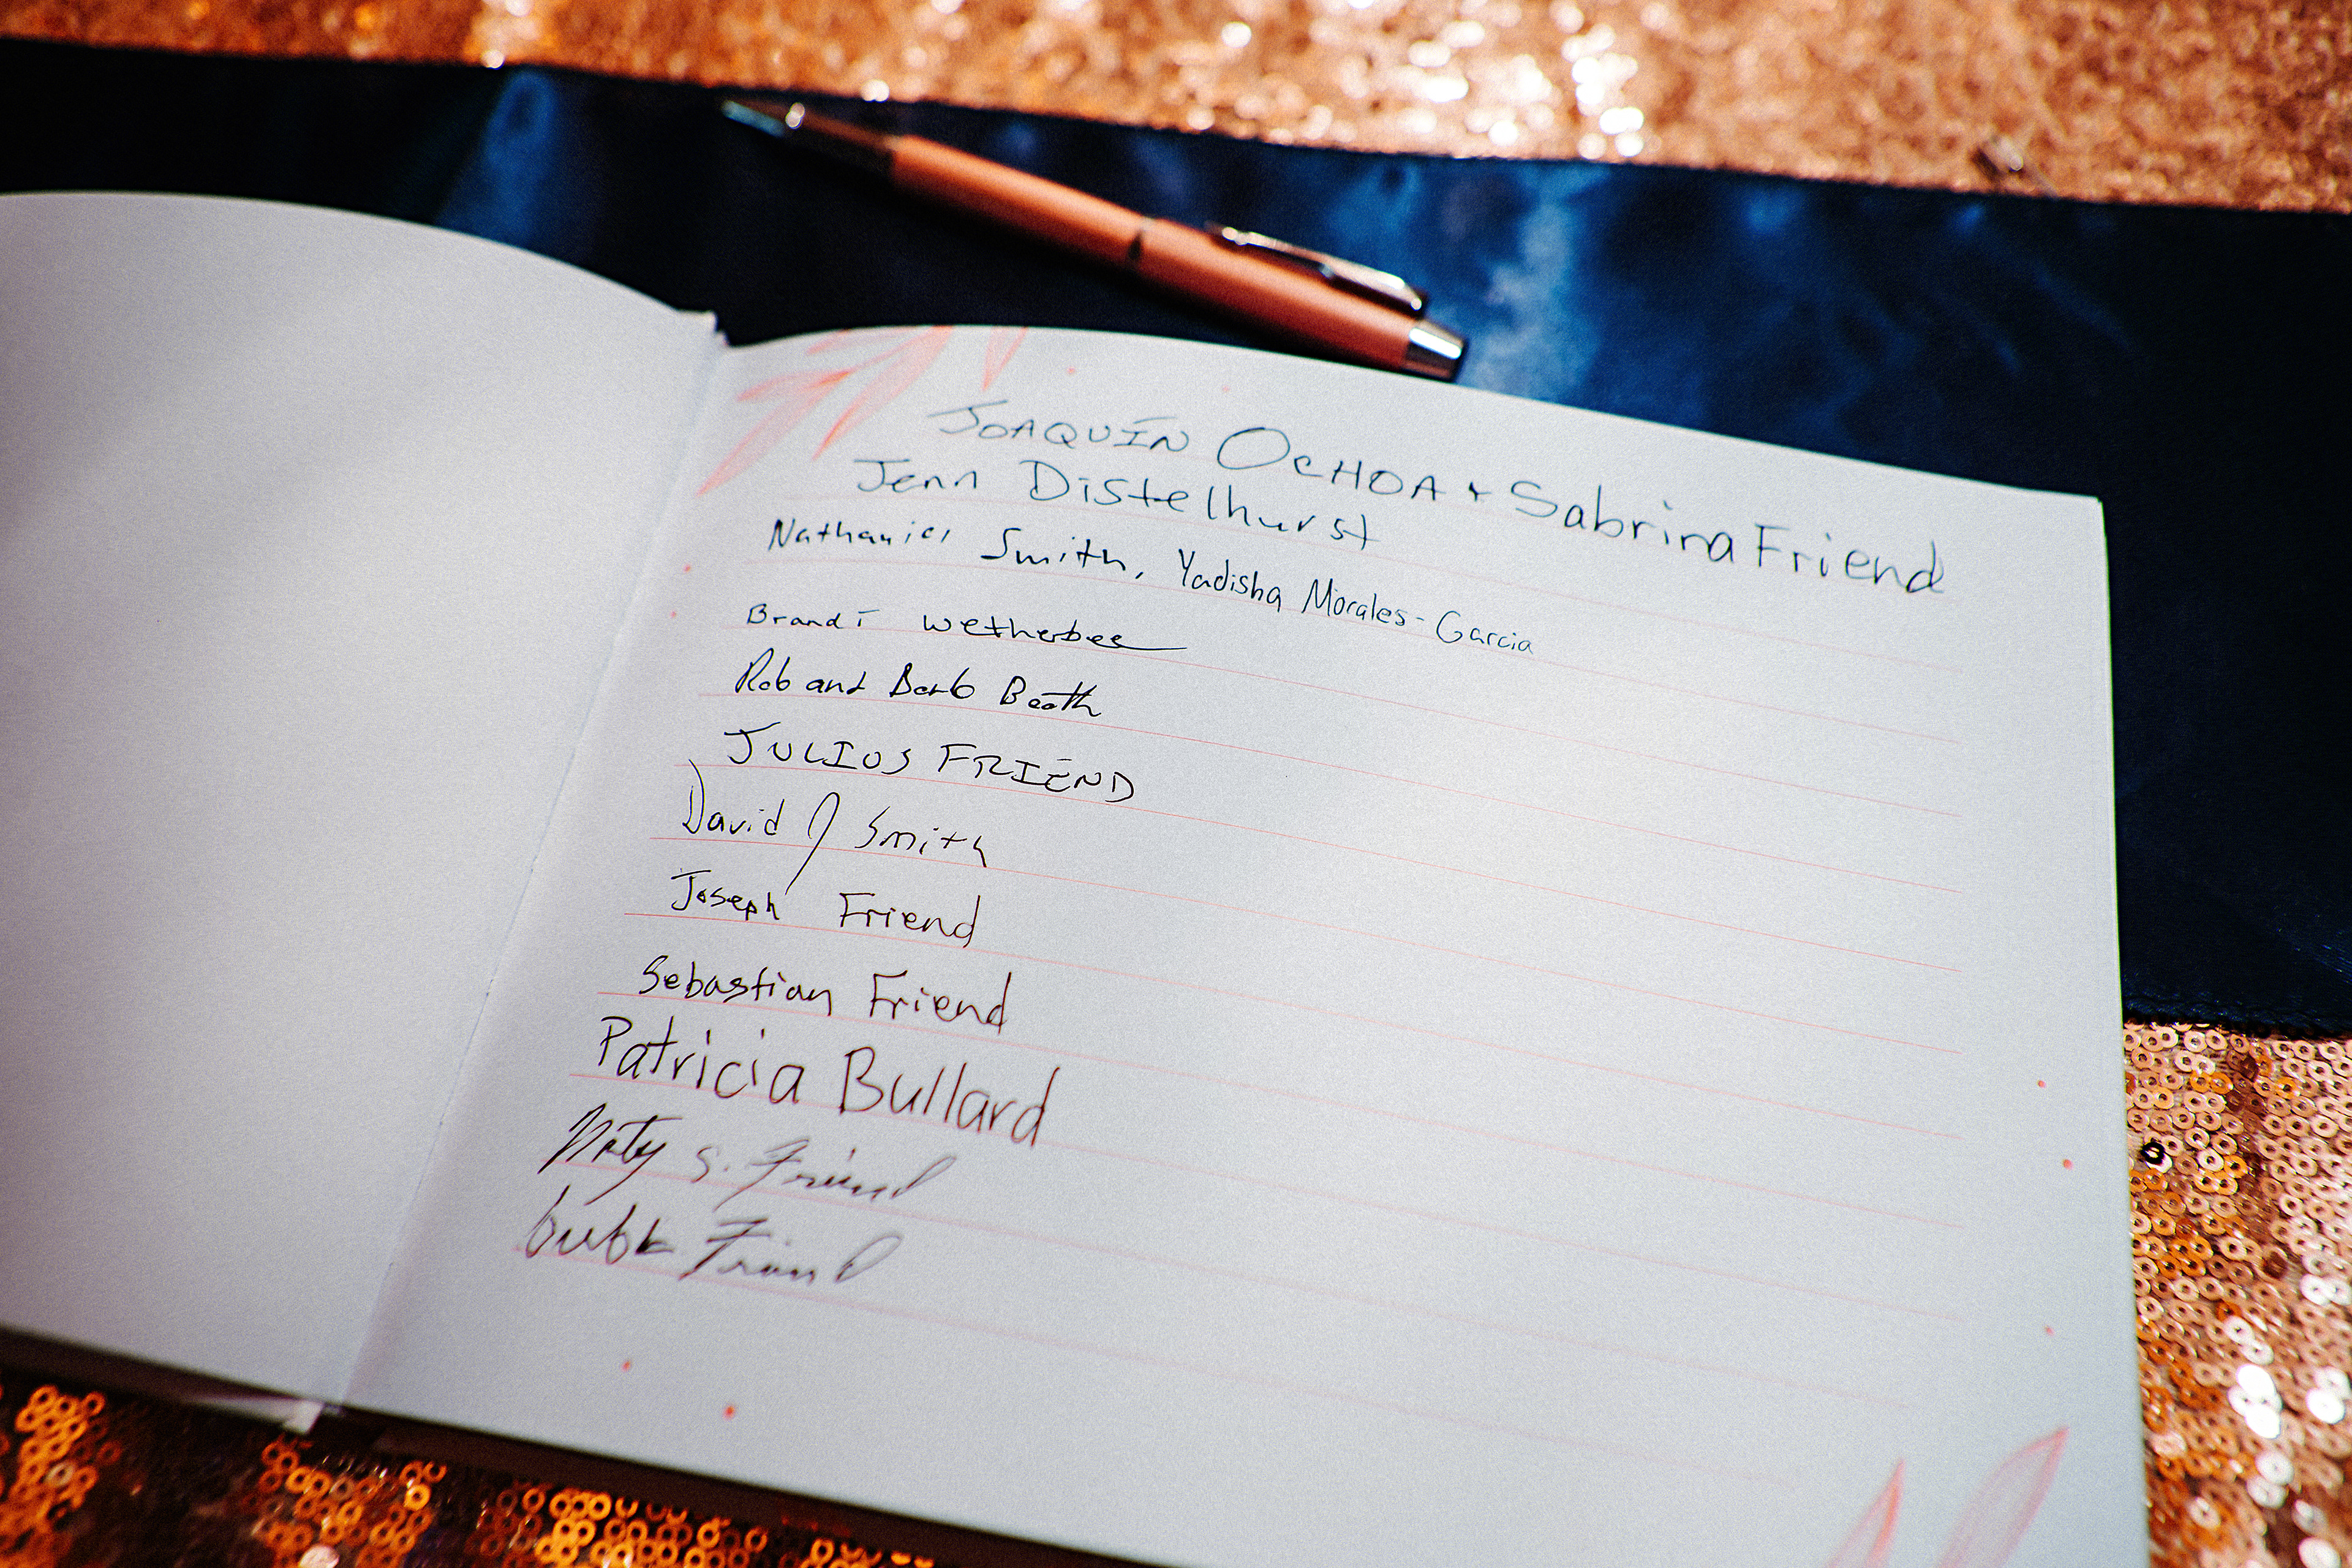 JOAQUÍN OCHOA + Sabrina Friend
Jenn Distelhurst
Nathaniel Smith, Yadisha Morales-Garcia
Brandi Wetherbee
Rob and Barb Booth
JULIUS FRIEND
David J Smith
Joseph Friend
Sebastian Friend
Patricia Bullard
S. Friend
Friend